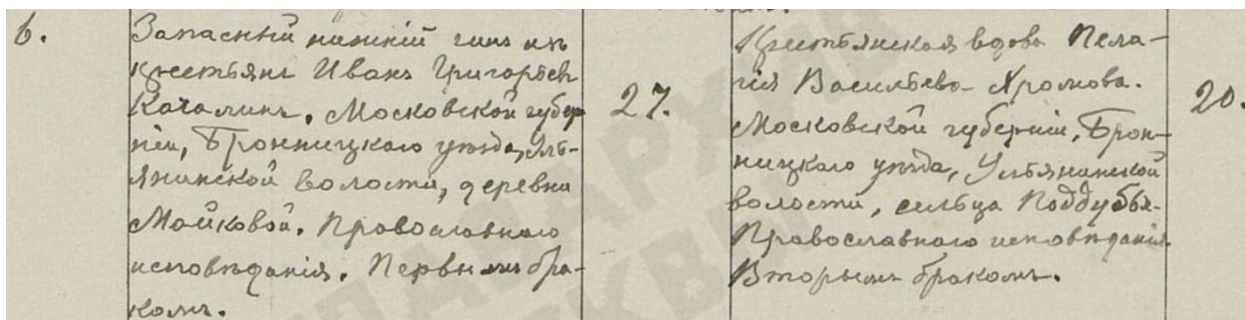 6.
Запасный нижній чинъ изъ
крестьянъ Иванъ Григорьевъ
Качалинъ, Московской губер
ніи, Бронницкаго уѣзда, Уль-
янинской волости, деревни
Майковой. Православнаго
исповѣданія. Первымъ бра-
комъ.
27.
Крестьянская вдова Пела-
гія Васильева Хромова.
Московской губерніи, Брон-
ницкаго уѣзда, Ульянинской
волости, сельца Поддубья.
Православнаго исповѣданія.
Вторымъ бракомъ.
20.